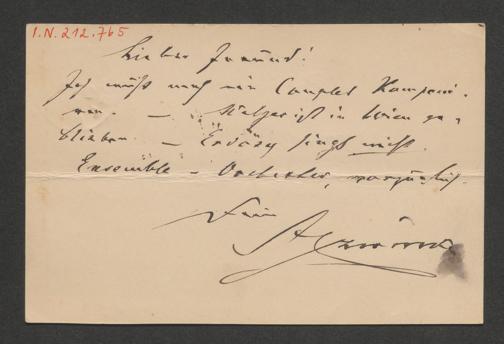 I.N. 212.765
Lieber Freund!
Ich muß noch ein Couplet komponi-
ren. — ist in Wien ge-
blieben. — singt nicht.
Ensemble – Orchester, vorzüglich.
Dein